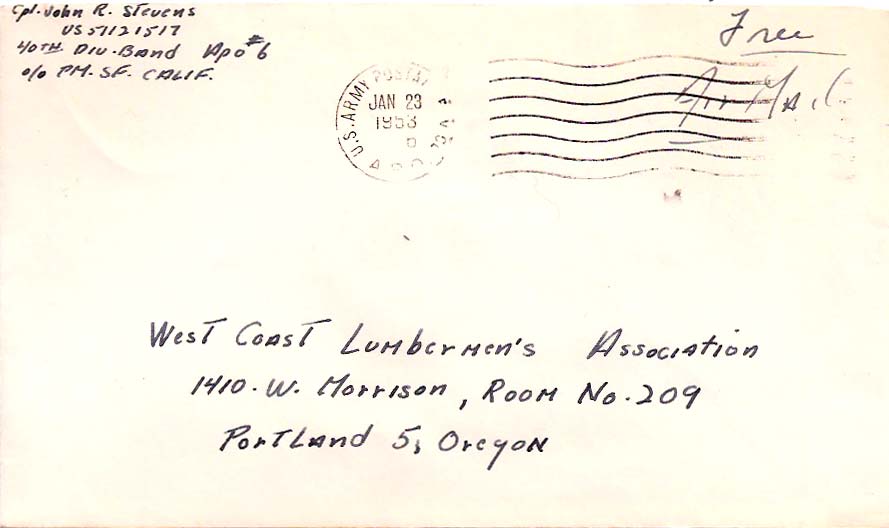 Cpl. John R. Stevens
US 51121517
40TH Div. Band Apo #6
c/o PM. SF. CALIF.
Free
Air Mail
U.S. ARMY POSTAL
JAN 23
1953
West Coast Lumbermen's Association
1410. W. Morrison, Room No. 209
Portland 5, Oregon